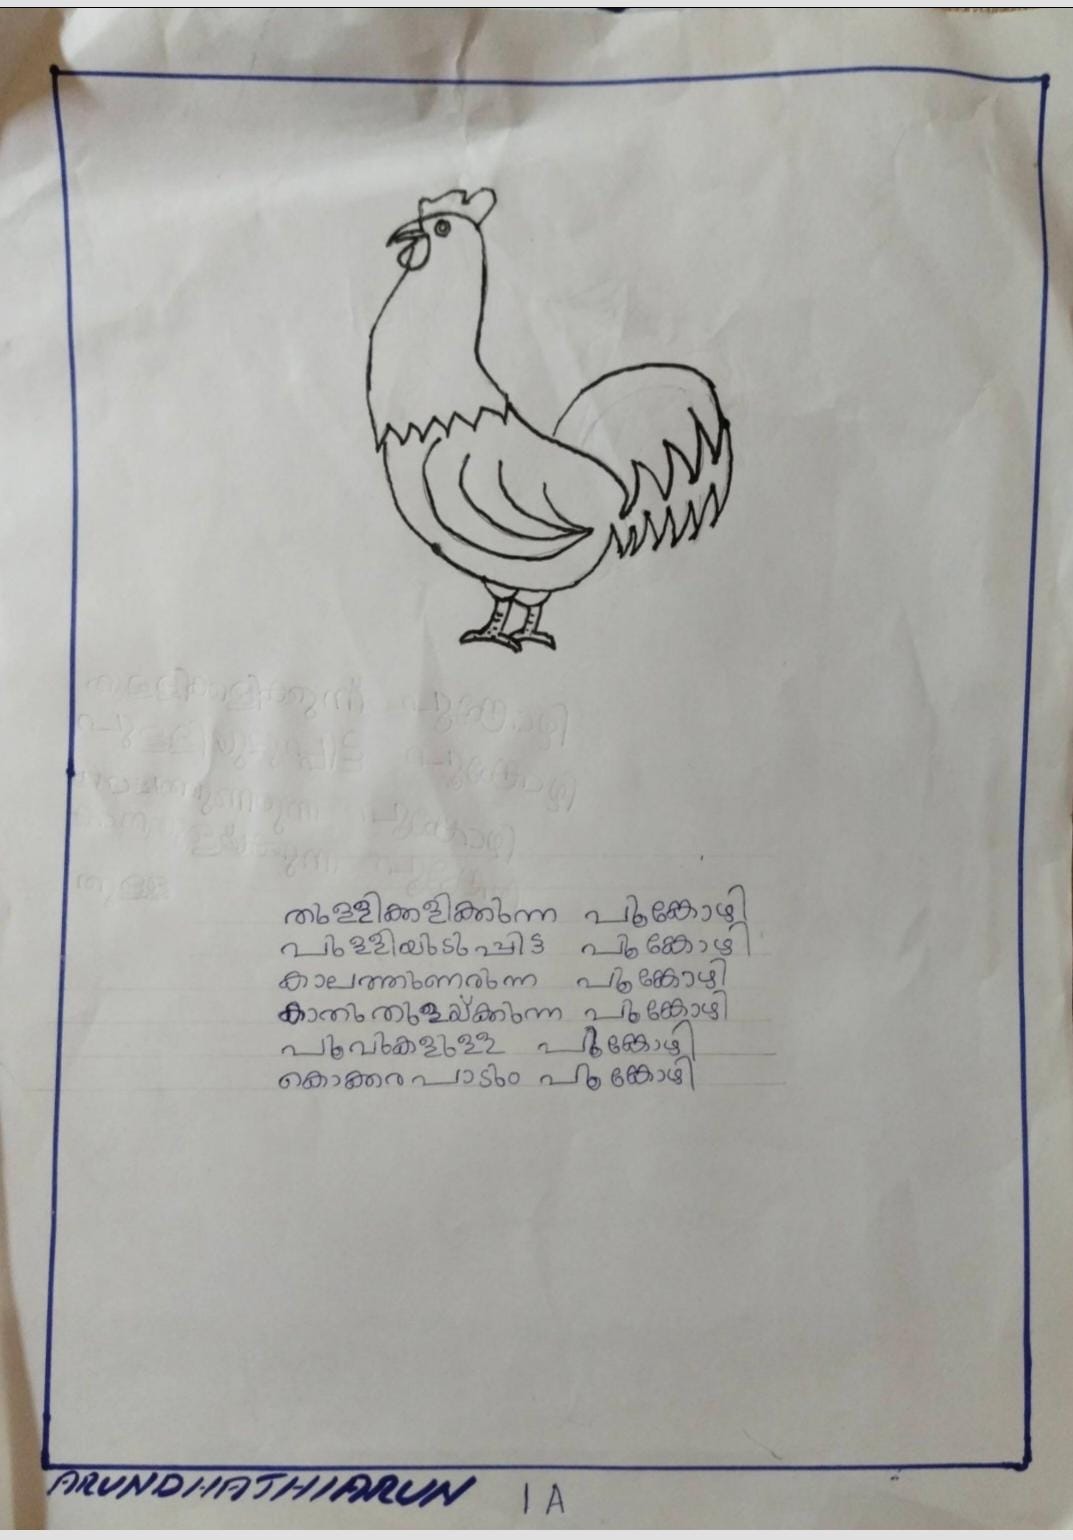 തുള്ളിക്കളിക്കുന്ന പൂങ്കോഴി
പുള്ളിയുടുപ്പിട്ട പൂങ്കോഴി
കാലത്തുണരുന്ന പൂങ്കോഴി
കാതുതുളയ്ക്കുന്ന പൂങ്കോഴി
പൂവുകളുള്ള പൂങ്കോഴി
കൊക്കര പാടും പൂങ്കോഴി
ARUNDHATHI ARUN 1 A